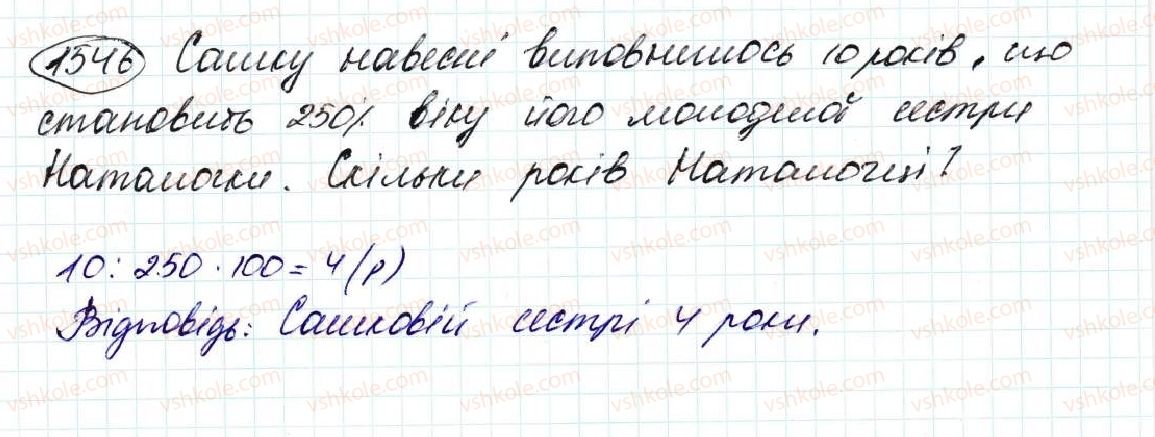 1546 Сашку навесні виповнилось 10 років, що
становить 250% віку його молодшої сестри
Наталочки. Скільки років Наталочці?
10 : 250 · 100 = 4 (р)
Відповідь: Сашковій сестрі 4 роки.